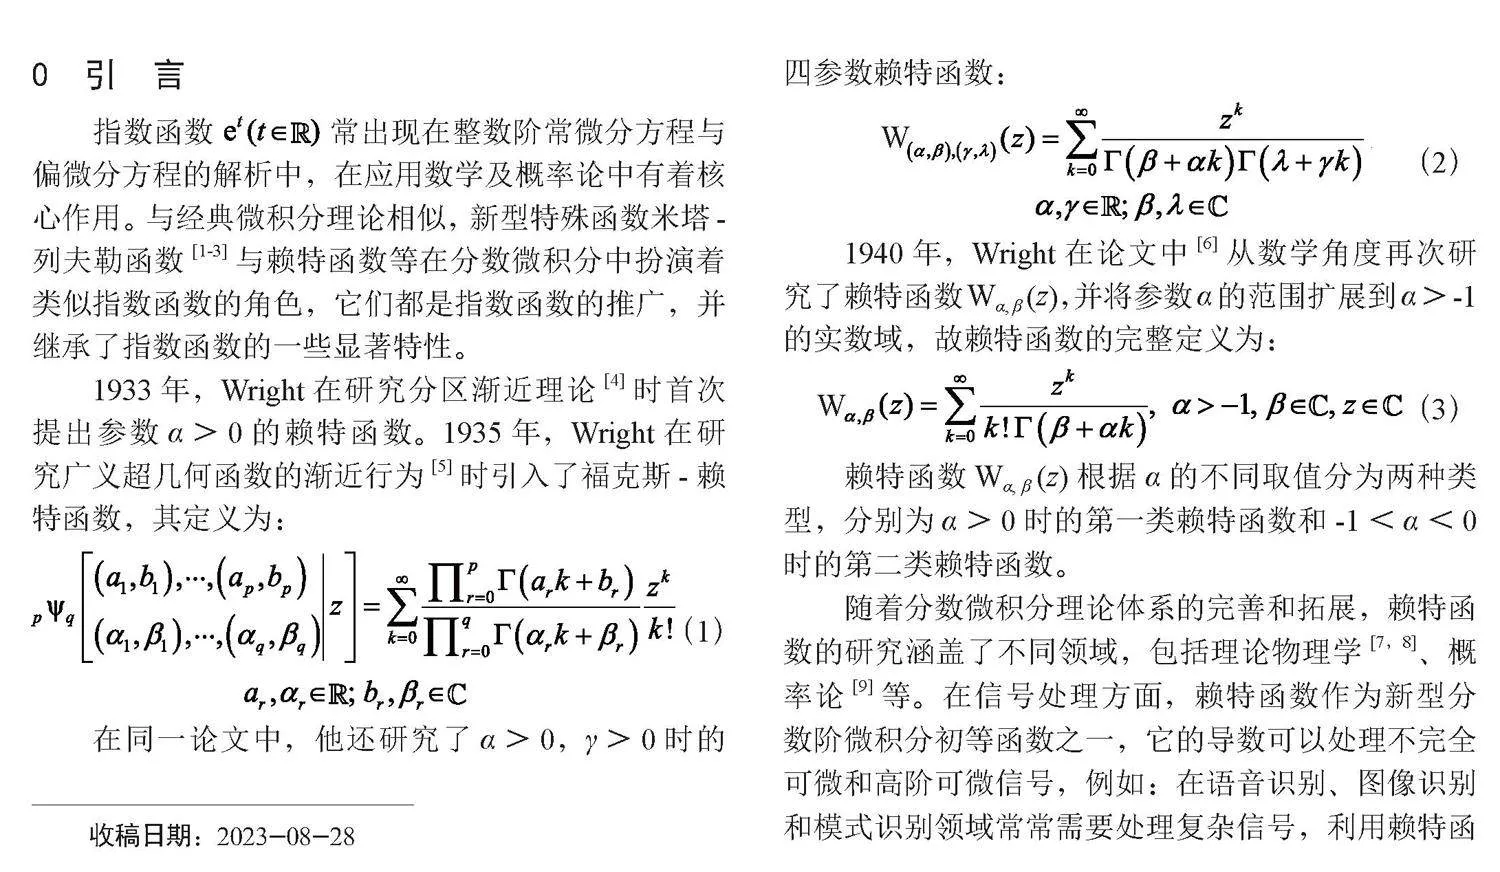 0 引 言
指数函数 eᵗ(t∈ℝ) 常出现在整数阶常微分方程与
偏微分方程的解析中，在应用数学及概率论中有着核
心作用。与经典微积分理论相似，新型特殊函数米塔 -
列夫勒函数 [1-3] 与赖特函数等在分数微积分中扮演着
类似指数函数的角色，它们都是指数函数的推广，并
继承了指数函数的一些显著特性。
1933 年，Wright 在研究分区渐近理论 [4] 时首次
提出参数 α > 0 的赖特函数。1935 年，Wright 在研
究广义超几何函数的渐近行为 [5] 时引入了福克斯 - 赖
特函数，其定义为：
pψq[(a₁,b₁),⋯,(aₚ,bₚ) (α₁,β₁),⋯,(α_q,β_q) | z] = ∑_{k=0}^{∞} (∏_{r=0}^{p} Γ(aᵣk+bᵣ))/(∏_{r=0}^{q} Γ(αᵣk+βᵣ)) z^k/k! (1)
aᵣ,αᵣ∈ℝ; bᵣ,βᵣ∈ℂ
在同一论文中，他还研究了 α > 0，γ > 0 时的
收稿日期：2023-08-28
四参数赖特函数：
W_{(α,β),(γ,λ)}(z) = ∑_{k=0}^{∞} z^k/(Γ(β+αk)Γ(λ+γk)) (2)
α,γ∈ℝ; β,λ∈ℂ
1940 年，Wright 在论文中 [6] 从数学角度再次研
究了赖特函数 W_{α,β}(z)，并将参数 α 的范围扩展到 α > -1
的实数域，故赖特函数的完整定义为：
W_{α,β}(z) = ∑_{k=0}^{∞} z^k/(k!Γ(β+αk)), α>−1, β∈ℂ, z∈ℂ (3)
赖特函数 W_{α,β}(z) 根据 α 的不同取值分为两种类
型，分别为 α > 0 时的第一类赖特函数和 -1 < α < 0
时的第二类赖特函数。
随着分数微积分理论体系的完善和拓展，赖特函
数的研究涵盖了不同领域，包括理论物理学 [7, 8]、概
率论 [9] 等。在信号处理方面，赖特函数作为新型分
数阶微积分初等函数之一，它的导数可以处理不完全
可微和高阶可微信号，例如：在语音识别、图像识别
和模式识别领域常常需要处理复杂信号，利用赖特函